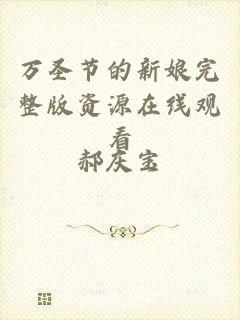 万圣节的新娘完
整版资源在线观
看
郝庆宝